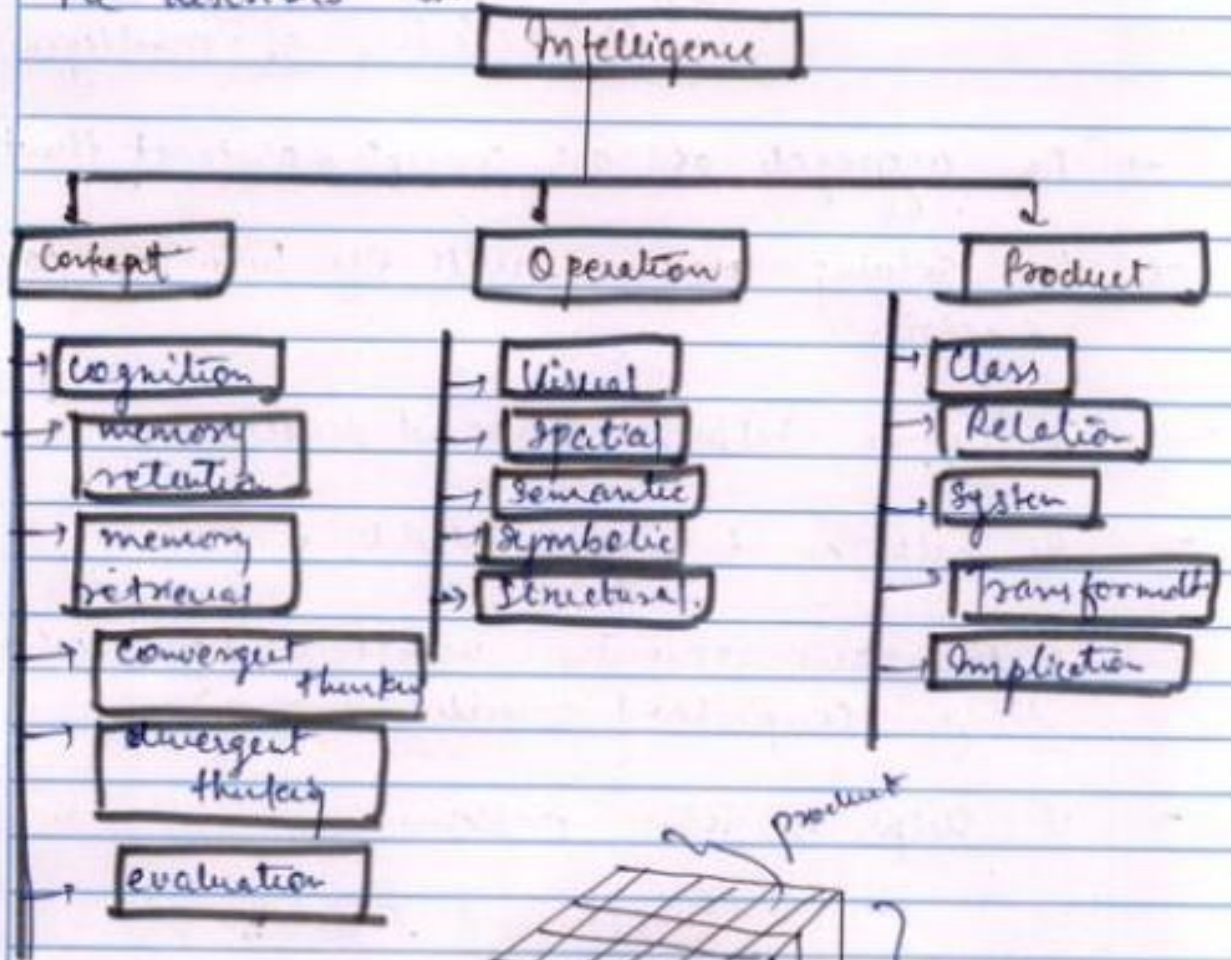 Intelligence
Concept
Operation
Product
cognition
memory
retention
memory
retrieval
convergent
thinking
divergent
thinking
evaluation
Visual
Spatial
Semantic
Symbolic
Structural.
Class
Relation
System
Transformat
Implication
product